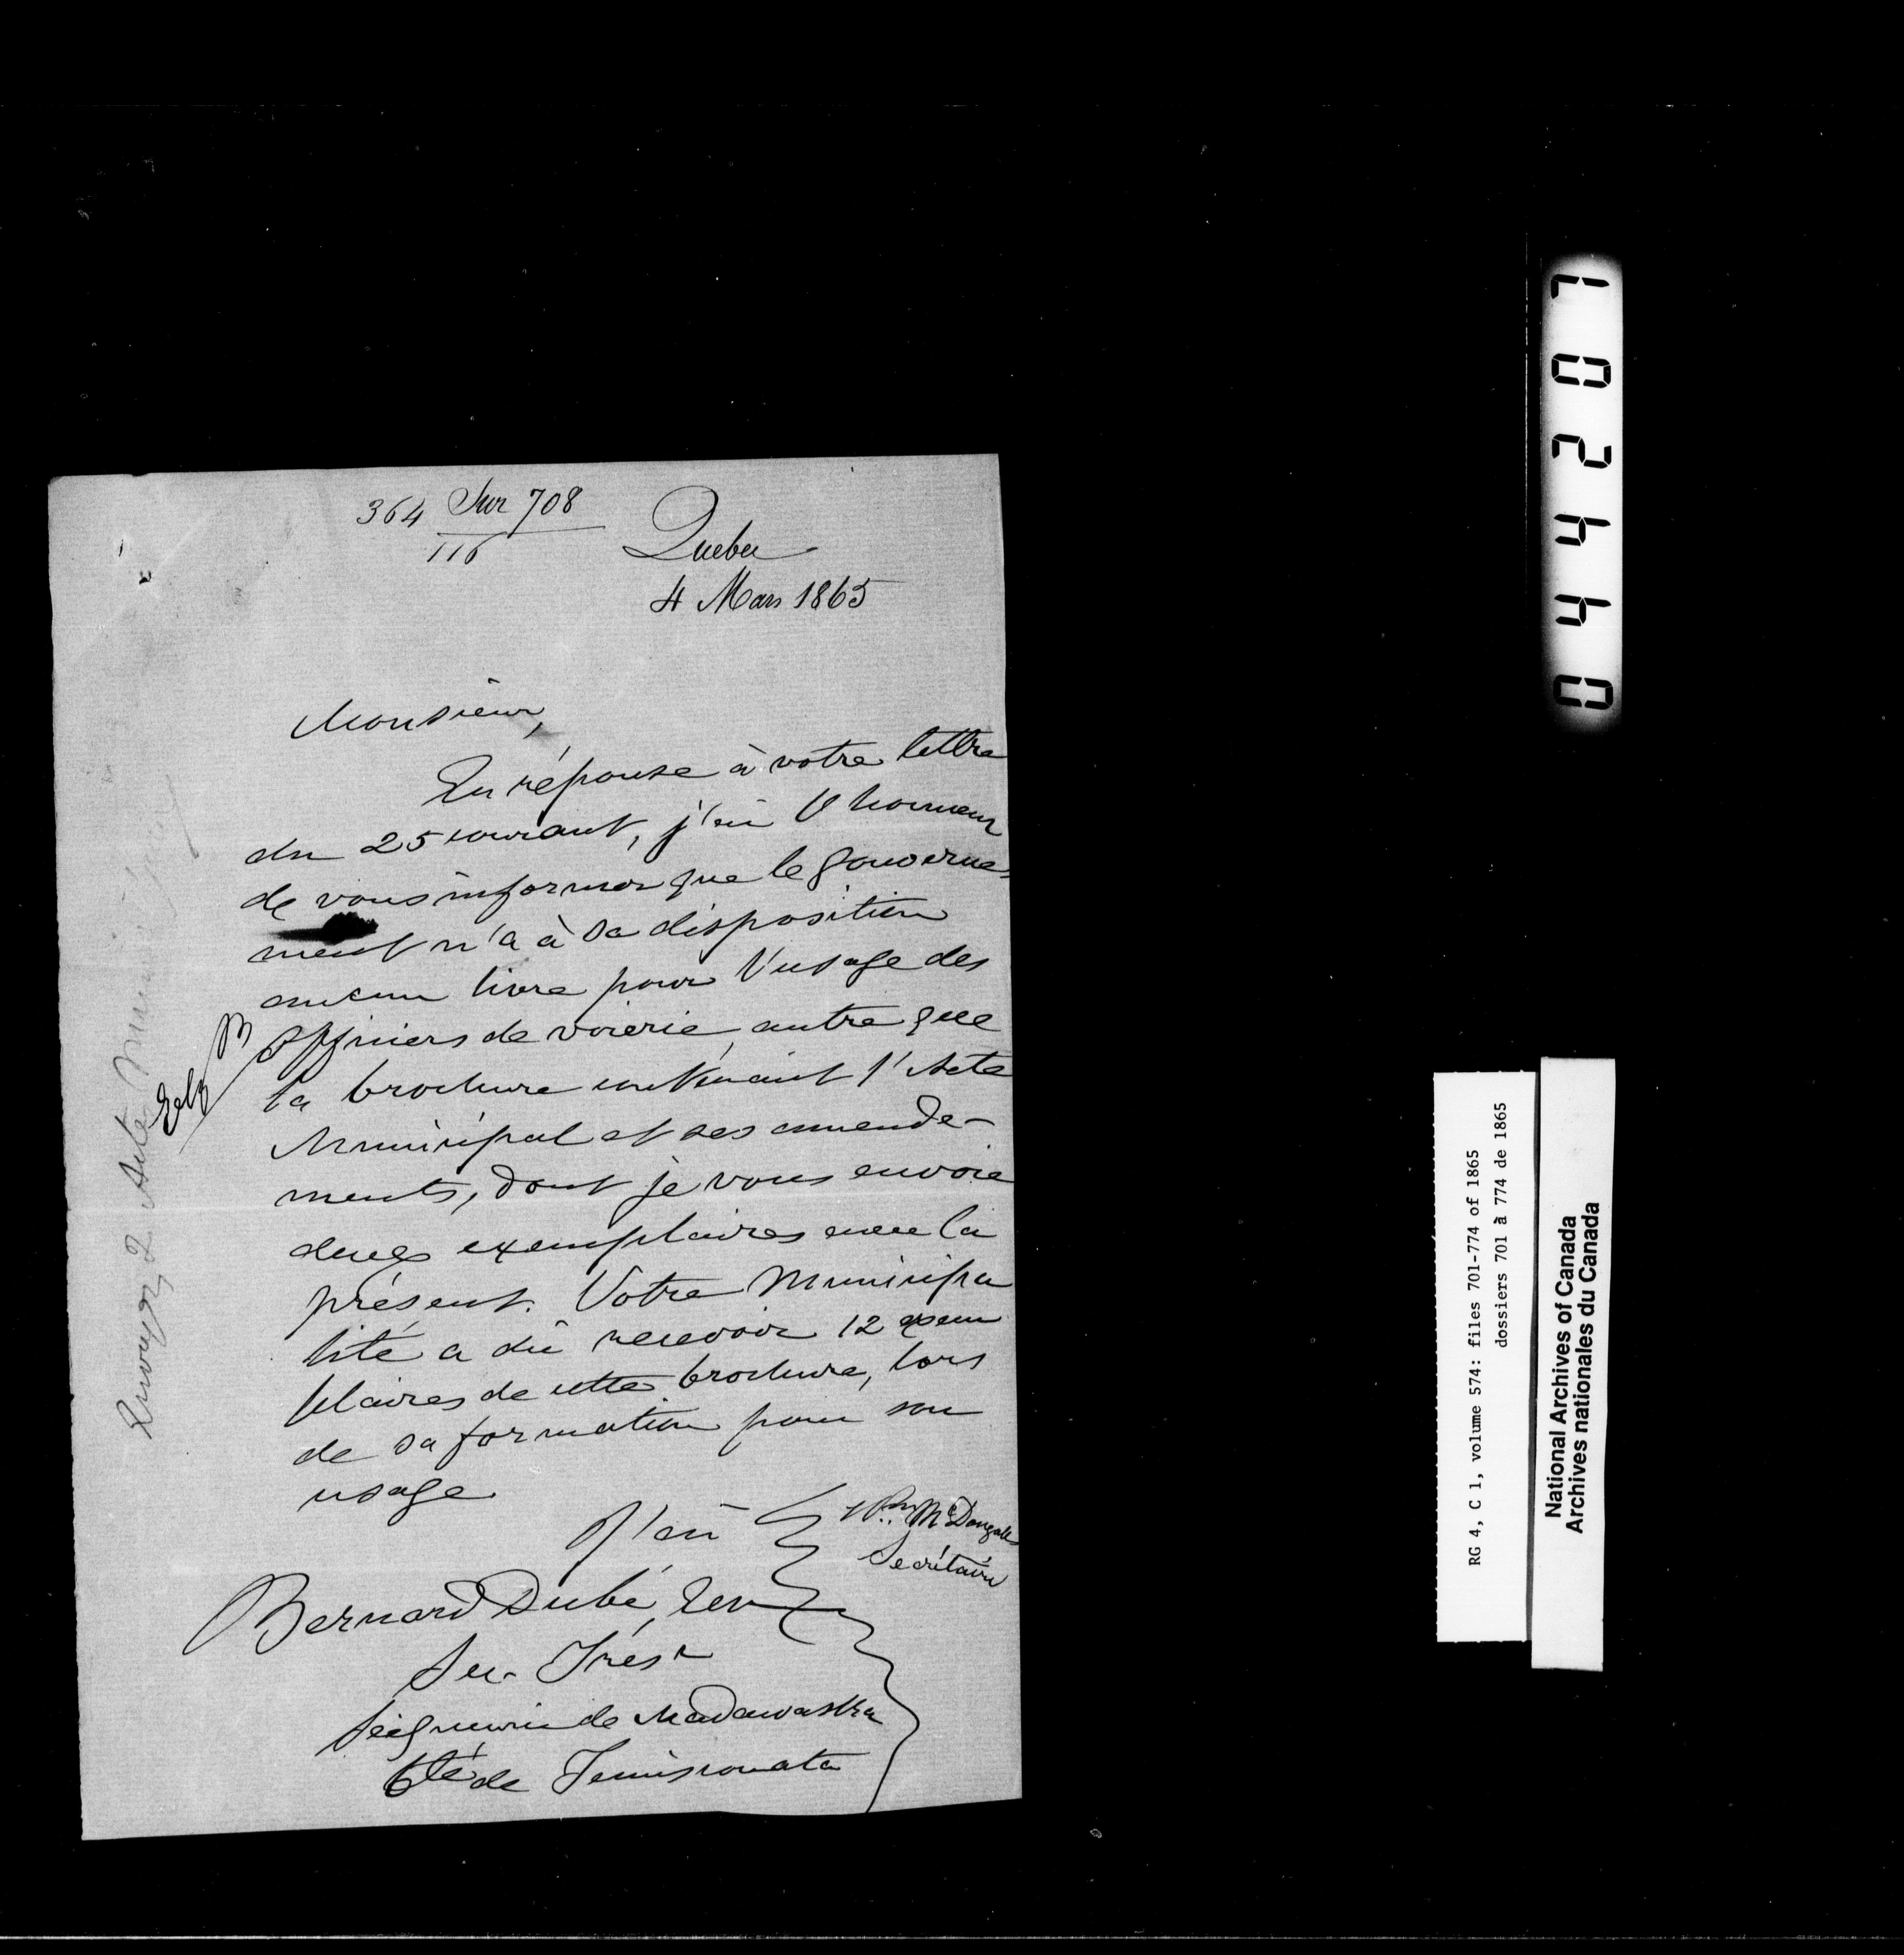 364 Sur 708
116
Quebec
4 Mars 1865
Monsieur,
En réponse à votre lettre
du 25 courant, j'ai l'honneur
de vous informer que le gouverne-
ment n'a à sa disposition
aucun livre pour l'usage des
officiers de voierie, autre que
la brochure contenant l'Acte
Municipal et ses amende-
ments, dont je vous envoie
deux exemplaires avec la
présent. Votre Municipa
lité a dû recevoir 12 exem
plaires de cette brochure, lors
de sa formation pour son
usage
J'ai
Wm McDougall
Secrétaire
Bernard Dubé,
Sec. Trésr
Seigneurie de Madawaska
Cté de Temiscouata
Envoyez 2 Acte Municipaux
024407
RG 4, C 1, volume 574: files 701-774 of 1865
dossiers 701 à 774 de 1865
National Archives of Canada
Archives nationales du Canada